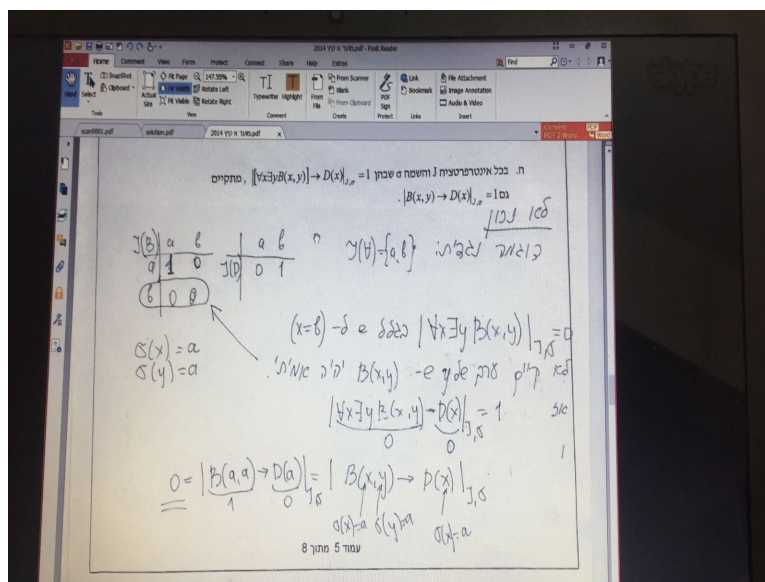 2014 מועד א קיץ.pdf - Foxit Reader
Home Comment View Form Protect Connect Share Help Extras
Find
Hand
Select
SnapShot
Clipboard
Actual Size
Fit Page
Fit Width
Fit Visible
147.55%
Rotate Left
Rotate Right
Typewriter
Highlight
From File
From Scanner
Blank
From Clipboard
PDF Sign
Link
Bookmark
File Attachment
Image Annotation
Audio & Video
Tools View Comment Create Protect Links Insert
scan0001.pdf solution.pdf 2014 מועד א קיץ.pdf x
Convert PDF 2 Word PDF Word
skype
ח. בכל אינטרפרטציה J והשמה σ שבהן |[∀x∃yB(x,y)] → D(x)|J,σ = 1 , מתקיים
גם |B(x,y) → D(x)|J,σ = 1 .
לא נכון
דוגמה נגדית: J(∀)={a,b}
J(B) a b
a 1 0
b 0 0
a b
J(D) 0 1
|∀x∃y B(x,y)|J,σ = 0 בגלל ש ל- (x=b)
לא קיים ערך של y ש- B(x,y) יהיה אמיתי.
σ(x) = a
σ(y) = a
אז |∀x∃y B(x,y) → D(x)|J,σ = 1
0 0
ו
0 = |B(a,a) → D(a)|J,σ = | B(x,y) → D(x)|J,σ
1 0
σ(x)=a σ(y)=a σ(x)=a
עמוד 5 מתוך 8